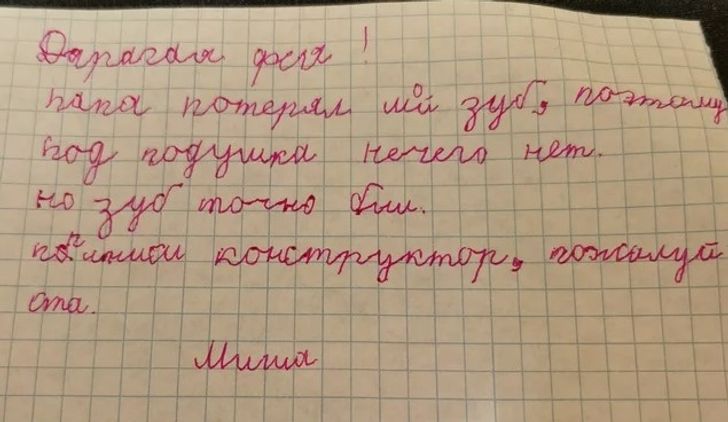 Дарагая фея!
папа потерял мой зуб, поэтому
под подушка нечего нет.
но зуб точно был.
конструктор, пожалуй
ста.
Миша